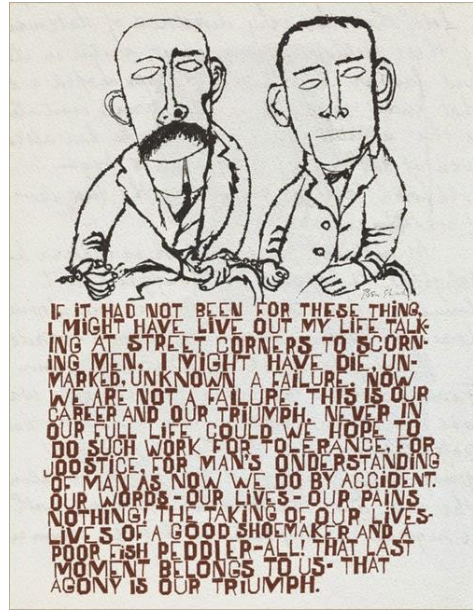 Ben Shahn
IF IT HAD NOT BEEN FOR THESE THING,
I MIGHT HAVE LIVE OUT MY LIFE TALK-
ING AT STREET CORNERS TO SCORN-
ING MEN. I MIGHT HAVE DIE, UN-
MARKED, UNKNOWN A FAILURE. NOW
WE ARE NOT A FAILURE. THIS IS OUR
CAREER AND OUR TRIUMPH. NEVER IN
OUR FULL LIFE COULD WE HOPE TO
DO SUCH WORK FOR TOLERANCE, FOR
JOOSTICE, FOR MAN'S ONDERSTANDING
OF MAN AS NOW WE DO BY ACCIDENT.
OUR WORDS - OUR LIVES - OUR PAINS
NOTHING! THE TAKING OF OUR LIVES-
LIVES OF A GOOD SHOEMAKER AND A
POOR FISH PEDDLER-ALL! THAT LAST
MOMENT BELONGS TO US- THAT
AGONY IS OUR TRIUMPH.